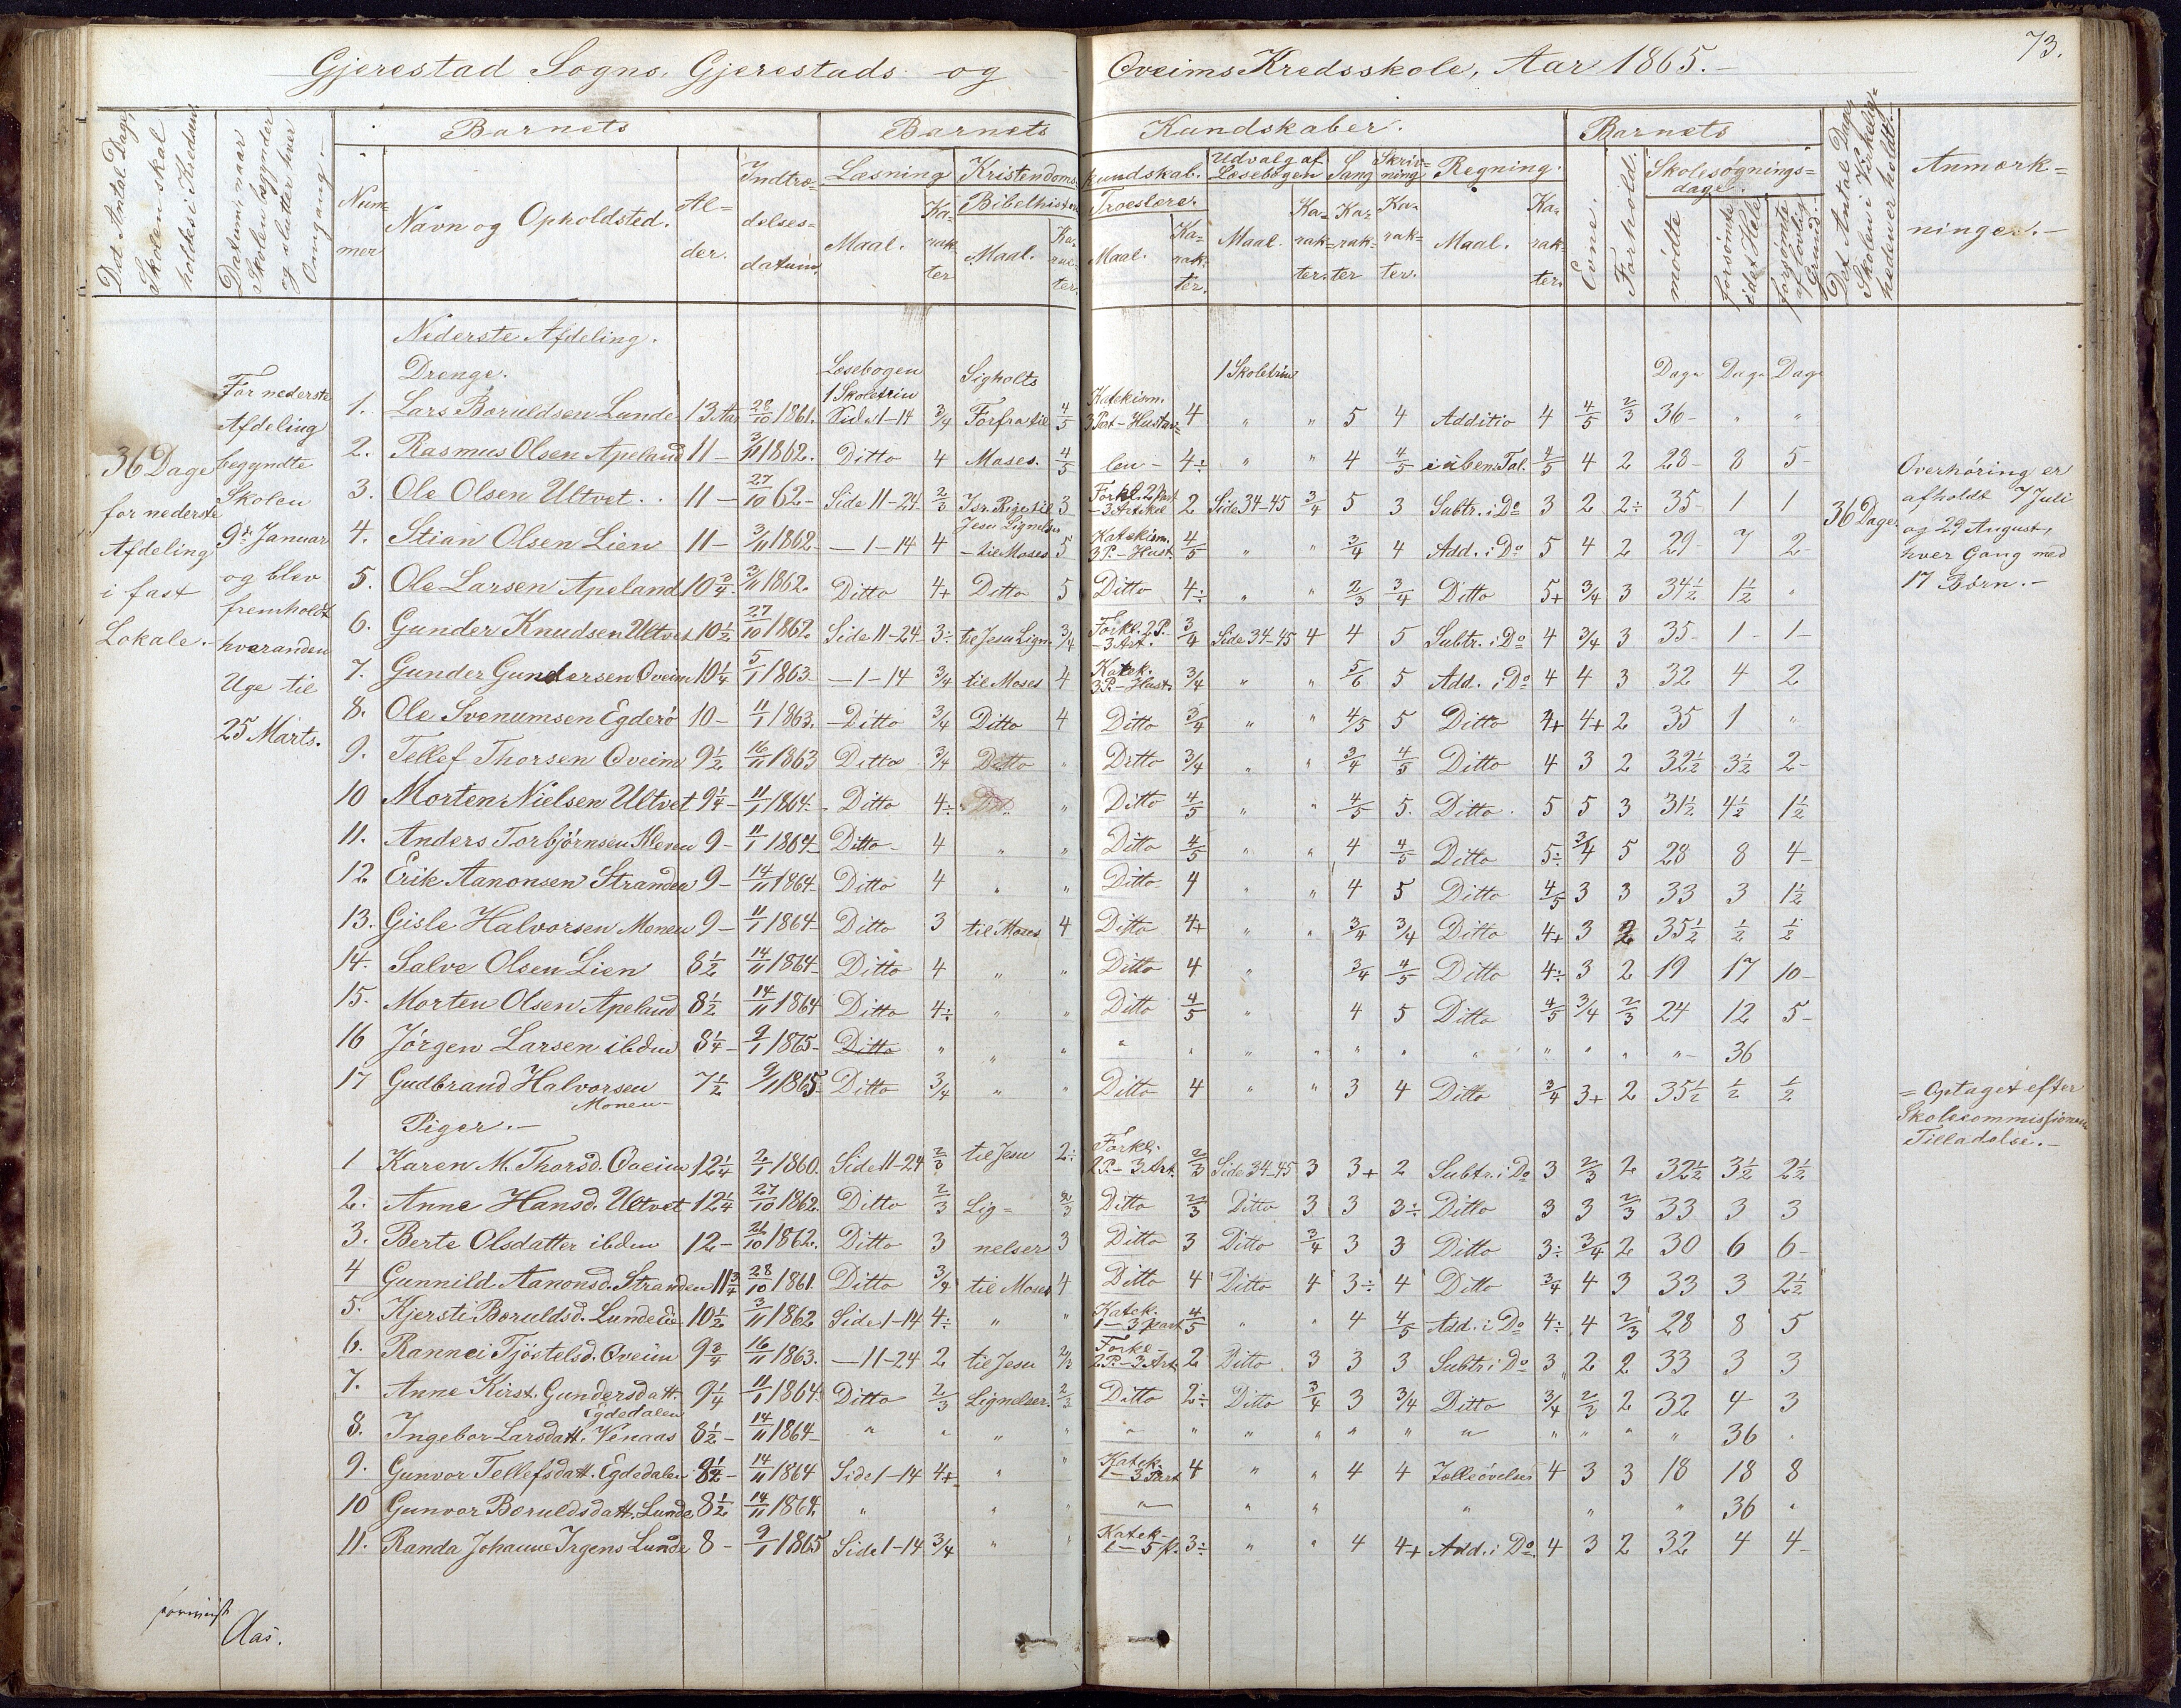 73.
Gjerestad Sogns, Gjerestads og Oveims Kredsskole, Aar 1865.-
Det Antal Dage, Skolen skal holdes i Kredsen
Datum, naar Skolen begynder og slutter hver Omgang.-
Barnets
Nummer
Navn og Opholdsted.
Alder.
Indtrædelsesdatum.
Barnets Kundskaber.
Læsning
Maal.
Karakter
Kristendomskundskab.
Bibelhistorie
Maal.
Karakter.
Troeslære.
Maal.
Karakter.
Udvalg af Læsebogen
Maal.
Karakter.
Sang
Karakter
Skrivning
Karakter.
Regning.
Maal.
Karakter.
Barnets
Evne.
Forhold.
Skolesøgningsdage.
mødte
forsømte i det Hele
forsømte af lovlig Grund.
Det Antal Dage Skolen i Virkeligheden er holdt.-
Anmærkninger.-
36 Dage for nederste Afdeling i fast Lokale.-
For nederste Afdeling begyndte Skolen 9de Januar og blev fremholdt hveranden Uge til 25 Marts.
Nederste Afdeling.
Drenge. Læsebogen Sigholts 1 Skoletrin Dage Dage Dage
1. Lars Boruldsen Lunde 13 Aar 28/10 1861. 1 Skoletrin Side 1-14 3/4 Forfra til 4/5 Katekism. 3 Part - Hustav= 4 " " 5 4 Additio 4 4/5 2/3 36- " "
2. Rasmus Olsen Apeland 11 - 3/11 1862. Ditto 4 Moses. 4/5 len - 4÷ " " 4 4/5 i üben. Tal. 4/5 4 2 28- 8 5-
3. Ole Olsen Ultvet .. 11 - 27/10 62- Side 11-24 2/3 Isr. Rige til 3 Forkl. 2 Part - 3 Artikel 2 Side 34-45 3/4 5 3 Subtr. i Do 3 2 2÷ 35- 1 1
Jesu Lignelser
4. Stian Olsen Lien 11 - 3/11 1862- - 1-14 4 - til Moses 5 Katekism. 3 P. - Hust. 4/5 " " 3/4 4 Add. i Do 5 4 2 29- 7 2-
5. Ole Larsen Apeland 10 3/4. 3/11 1862. Ditto 4+ Ditto 5 Ditto 4÷ " " 2/3 3/4 Ditto 5+ 3/4 3 34 1/2 1 1/2 "
6. Gunder Knudsen Ultvet 10 1/2 27/10 1862. Side 11-24 3÷ til Jesu Lign. 3/4 Forkl. 2 P. - 3 Art. 3/4 Side 34-45 4 4 5 Subtr. i Do 4 3/4 3 35- 1- 1-
7. Gunder Gundersen Oveim 10 1/4 5/1 1863- - 1-14 3/4 til Moses 4 Katek. 3 P. - Hust. 3/4 " " 5/6 5 Add. i Do 4 4 3 32 4 2
8. Ole Svenumsen Egderö 10 - 11/1 1863. - Ditto 3/4 Ditto 4 Ditto 3/4 " " 4/5 5 Ditto 4+ 4+ 2 35 1 "
9. Tellef Thorsen Oveim 9 1/2 16/11 1863 Ditto 3/4 Ditto " Ditto 3/4 " " 3/4 4/5 Ditto 4 3 2 32 1/2 3 1/2 2-
10 Morten Nielsen Ultvet 9 1/4 - 11/1 1864- Ditto 4÷ " Ditto 4/5 " " 4/5 5. Ditto. 5 5 3 31 1/2 4 1/2 1 1/2
11. Anders Torbjørnsen Kleven 9 - 11/1 1864- Ditto - 4 " " Ditto 4/5 " " 4 4/5 Ditto 5÷ 3/4 5 28 8 4-
12 Erik Aanonsen Stranden 9 - 14/11 1864- Ditto 4 " " Ditto 4 " " 4 5 Ditto 4/5 3 3 33 3 1 1/2
13. Gisle Halvorsen Monen 9 - 11/1 1864- Ditto 3 til Moses 4 Ditto 4+ " " 3/4 3/4 Ditto 4+ 3 2 35 1/2 1/2 1/2
14. Salve Olsen Lien 8 1/2 14/11 1864- Ditto 4 " " Ditto 4 " 3/4 4/5 Ditto 4÷ 3 2 19 17 10-
15. Morten Olsen Apeland 8 1/2 14/11 1864 Ditto 4÷ " " Ditto 4/5 " 4 5 Ditto 4/5 3/4 2/3 24 12 5-
16 Jörgen Larsen ibdm 8 1/4 - 9/1 1865- Ditto " " " " " " " " " " " " " "- 36
17 Gudbrand Halvorsen Monen- 7 1/2 9/1 1865- Ditto 3/4 " " Ditto 4 " " 3 4 Ditto 3/4 3+ 2 35 1/2 1/2 1/2
Piger.-
1 Karen M. Thorsd. Oveim 12 1/4 2/1 1860. Side 11-24 2/3 til Jesu 2÷ Forkl. 2 P. - 3 Art. 2/3 Side 34-45 3 3+ 2 Subtr. i Do 3 2/3 2 32 1/2 3 1/2 2 1/2
2. Anne Hansd. Ultvet 12 1/4 27/10 1862. Ditto 2/3 Lig= 2/3 Ditto 2/3 Ditto 3 3 3÷ Ditto 3 3 2/3 33 3 3
3. Berte Olsdatter ibdm 12- 21/10 1862. Ditto 3 nelser 3 Ditto 3 Ditto 3/4 3 3 Ditto 3÷ 3/4 2 30 6 6-
4 Gunnild Aanonsd. Stranden 11 3/4 28/10 1861. Ditto 3/4 til Moses 4 Ditto 4 Ditto 4 3÷ 4 Ditto 3/4 4 3 33 3 2 1/2
5. Kjersti Boruldsd. Lundelie 10 1/2 3/11 1862 Side 1-14 4÷ " " Katek. 1-3 part 4/5 " " 4 4/5 Add. i Do 4÷ 4 2/3 28 8 5
6. Rannei Tjöstelsd. Oveim 9 3/4 16/11 1863. - 11-24 2 til Jesu 2/3 Forkl- 2 P. - 3 Art. 2 Ditto. 3 3 3 Subtr. i Do 3 2 2 33 3 3
7. Anne Kirst. Gundersdatt. Egdedalen 9 1/4 11/1 1864- Ditto 2/3 Lignelser. 2/3 Ditto 2÷ Ditto 3/4 3 3/4 Ditto 3/4 2/3 2 32 4 3
8. Ingebor Larsdatt. Venaas 8 1/2 - 14/11 1864- " " " " " " " " " " " " " " " 36 "
9. Gunvor Tellefsdatt. Egdedalen 8 1/2 - 14/11 1864 Side 1-14 4+ " " Katek. 1-3 Part 4 " " 4 4 Tælleövelser 4 3 3 18 18 8
10 Gunvor Boruldsdatt. Lunde 8 1/2 14/11 1864. " " " " " " " " " 36 "
11. Randa Johanne Irgens Lunde 8 - 9/1 1865 Side 1-14 3/4 " " Katek- 1-5 p. 3÷ " " 4 4+ Add. i Do 4 3 2 32 4 4-
36 Dage
Overhöring er
afholdt 7 Juli
og 29 August,
hver Gang med
17 Børn.-
= Optaget efter
Skolecommissionens
Tilladelse.-
Aas.